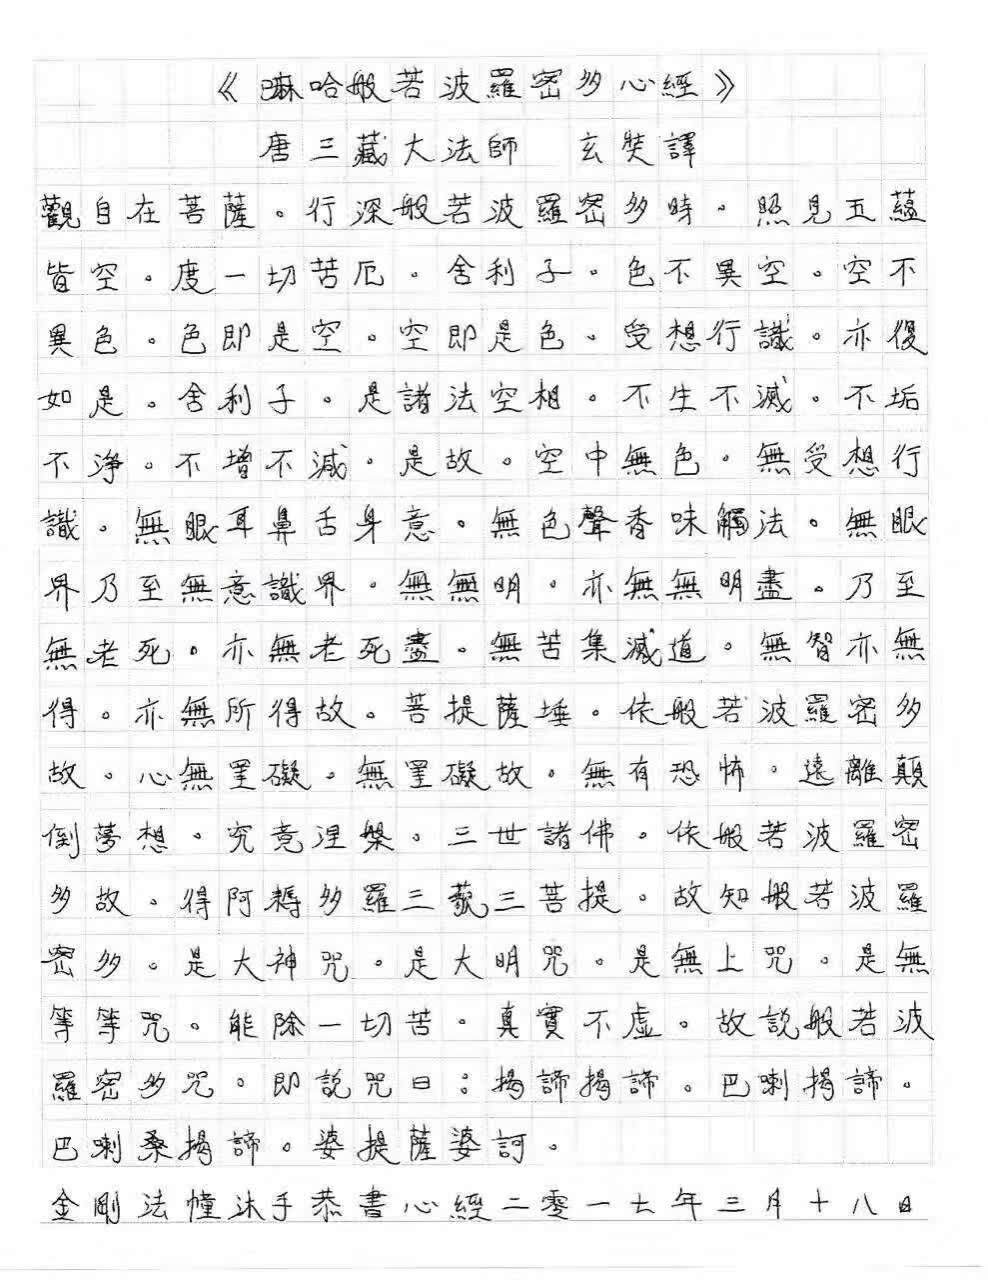 《嘛哈般若波羅密多心經》
唐三藏大法師 玄奘譯
觀自在菩薩。行深般若波羅密多時。照見五蘊
皆空。度一切苦厄。舍利子。色不異空。空不
異色。色即是空。空即是色。受想行識。亦復
如是。舍利子。是諸法空相。不生不滅。不垢
不淨。不增不減。是故。空中無色。無受想行
識。無眼耳鼻舌身意。無色聲香味觸法。無眼
界乃至無意識界。無無明。亦無無明盡。乃至
無老死。亦無老死盡。無苦集滅道。無智亦無
得。亦無所得故。菩提薩埵。依般若波羅密多
故。心無罣礙。無罣礙故。無有恐怖。遠離顛
倒夢想。究竟涅槃。三世諸佛。依般若波羅密
多故。得阿耨多羅三藐三菩提。故知般若波羅
密多。是大神咒。是大明咒。是無上咒。是無
等等咒。能除一切苦。真實不虛。故説般若波
羅密多咒。即説咒曰：揭諦揭諦。巴喇揭諦。
巴喇桑揭諦。婆提薩婆訶。
金剛法幢沐手恭書心經二零一七年三月十八日